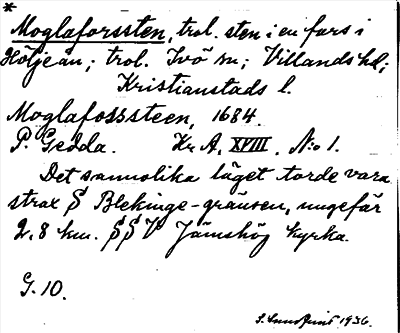 *
Moglaforssten, trol. sten i en fors i
Höljeån; trol. Ivö sn; Villands hd;
Kristianstads l.
Moglafossteen, 1684.
P. Gedda. Kr. A. XVIII. N:o 1.
Det sannolika läget torde vara
strax S Blekinge-gränsen, ungefär
2,8 km. SSV Jämshög kyrka.
G. 10.
S. 1936.